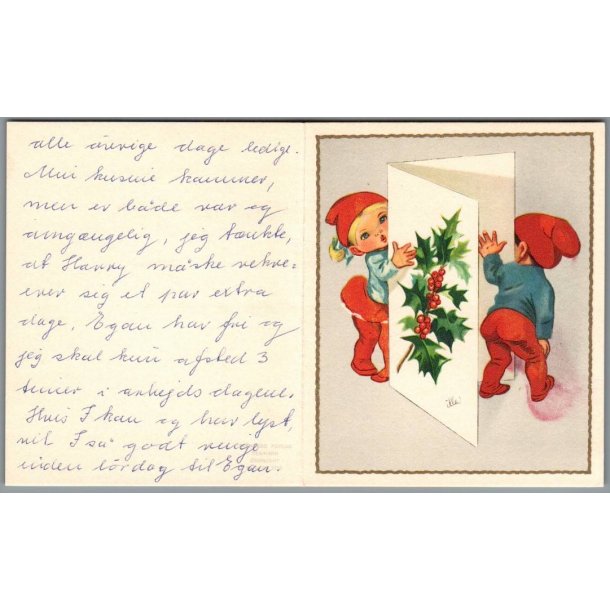 alle øvrige dage ledige.
Min kusine kommer,
men er både rar og
omgængelig, jeg tænkte,
at Harry måske rekvi-
erer sig et par extra
dage. Egon har fri og
jeg skal kun afsted 3
timer i arbejds dagene.
Hvis I kan og har lyst,
vil I så godt ringe
inden lördag til Egon.